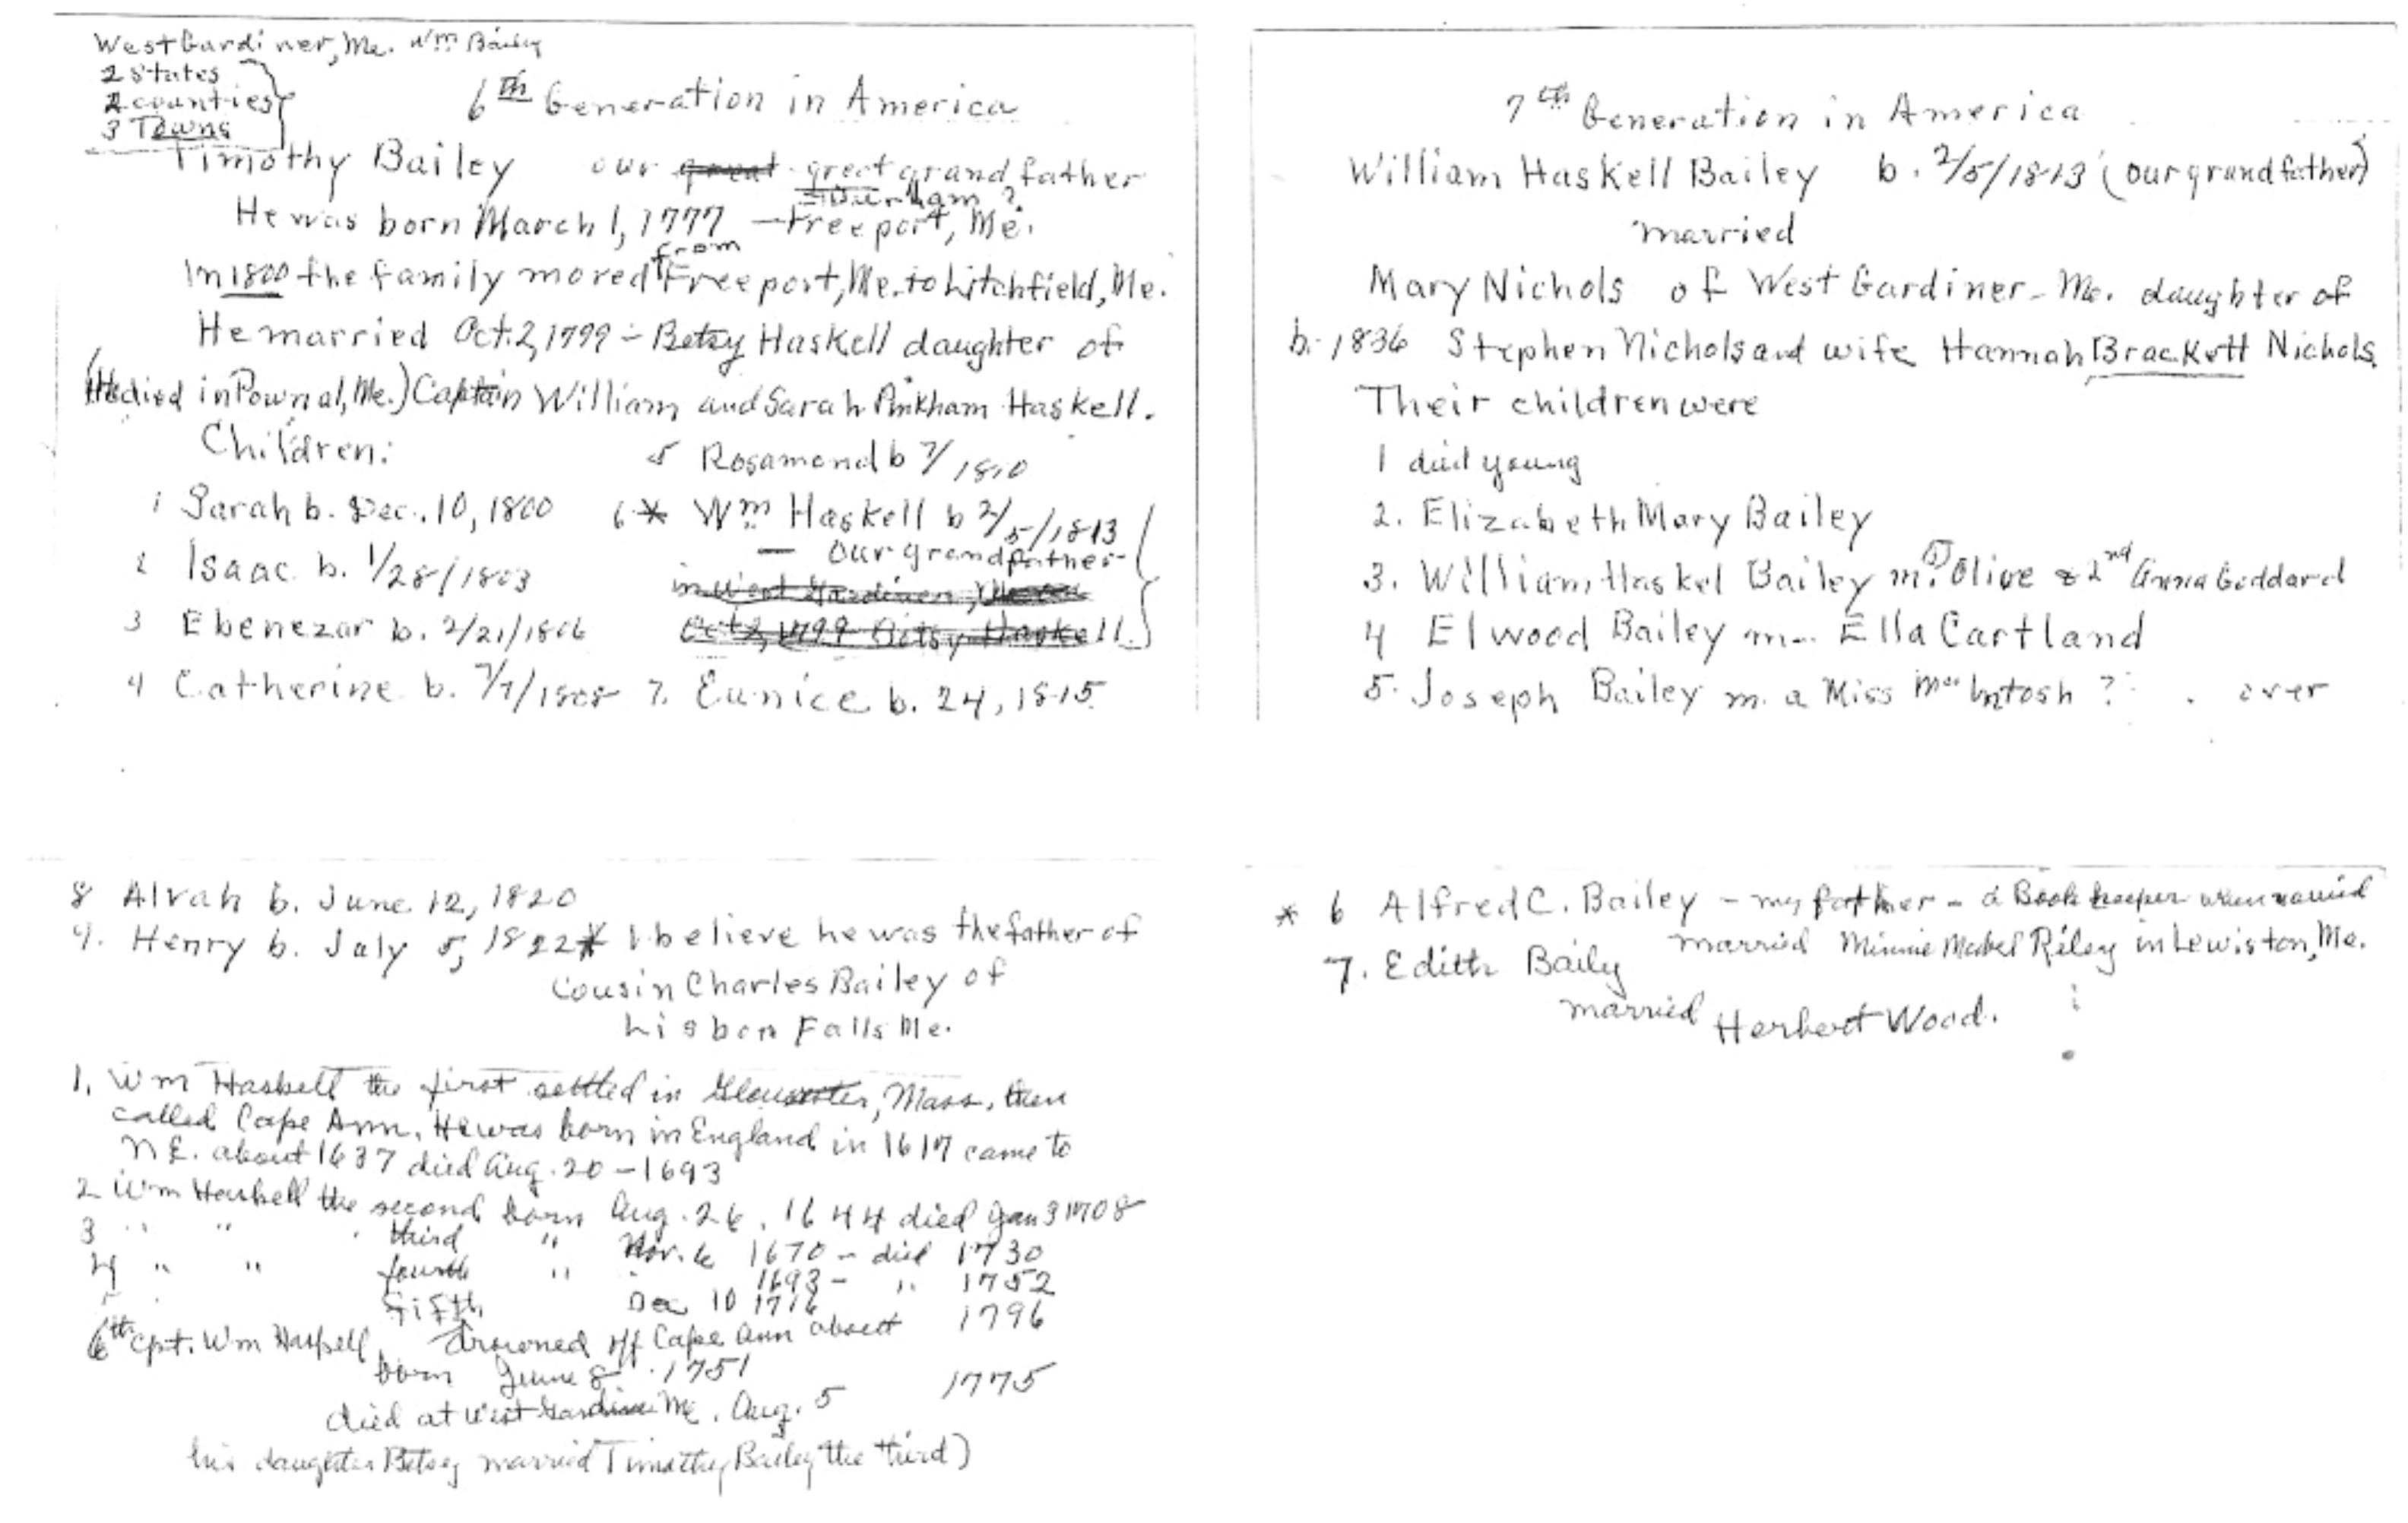 West Gardiner, Me. Wm Bailey
2 States
2 counties
3 Towns
6th Generation in America
Timothy Bailey our great great grandfather
Durham ?
He was born March 1, 1777 — Freeport, Me.
from
In 1800 the family moved Freeport, Me. to Litchfield, Me.
He married Oct. 2, 1799 - Betsy Haskell daughter of
(He died in Pownal, Me.) Captain William and Sarah Pinkham Haskell.
Children:
1 Sarah b. Dec. 10, 1800
2 Isaac b. 1/28/1803
3 Ebenezar b. 2/21/1806
4 Catherine b. 7/7/1808
5 Rosamond b 7/1810
6 * Wm Haskell b 2/5/1813
— our grandfather
in West Gardiner,
Oct 2, 1799 Betsy Haskell.
7. Eunice b. 24, 1815
7th Generation in America
William Haskell Bailey b. 2/5/1813 (our grandfather)
married
Mary Nichols of West Gardiner - Me. daughter of
b. 1836 Stephen Nichols and wife Hannah Brackett Nichols
Their children were
1 died young
2. Elizabeth Mary Bailey
3. William Haskel Bailey m. (1) Olive & 2nd Anna Goddard
4 Elwood Bailey m- Ella Cartland
5. Joseph Bailey m. a Miss MacIntosh ? . over
8 Alvah b. June 12, 1820
9. Henry b. July 5, 1822 * I believe he was the father of
Cousin Charles Bailey of
Lisbon Falls Me.
1. Wm Haskell the first settled in Gloucester, Mass. then
called Cape Ann. He was born in England in 1617 came to
N.E. about 1637 died Aug. 20 - 1693
2 Wm Haskell the second born Aug. 26, 1644 died Jan 3 1708
3 " " third " Nov. 6 1670 - died 1730
4 " " fourth " 1693 - " 1752
fifth Dec 10 1716
6th Cpt. Wm Haskell drowned off Cape Ann about 1796
born June 8 1751
1775
died at West Gardiner Me. Aug. 5
his daughter Betsey married Timothy Bailey the third)
* 6 Alfred C. Bailey - my father - a Book keeper when married
married Minnie Mabel Riley in Lewiston, Me.
7. Edith Baily
married Herbert Wood.